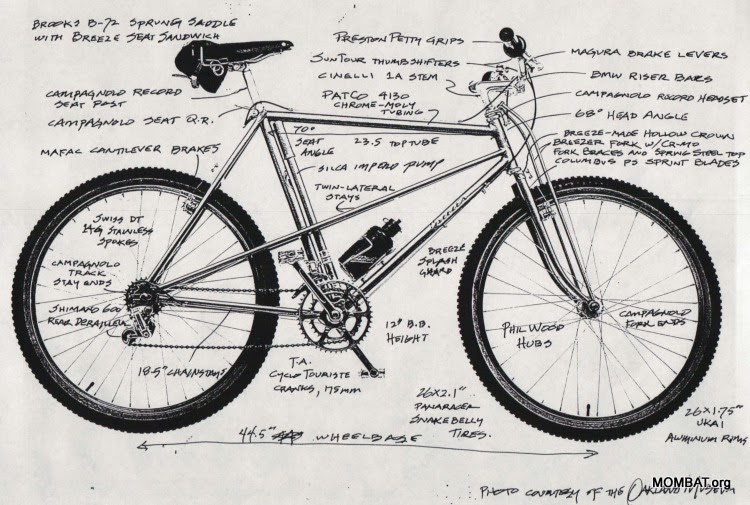 BROOKS B-72 SPRUNG SADDLE
WITH BREEZE SEAT SANDWICH
PRESTON PETTY GRIPS
SUNTOUR THUMBSHIFTERS
CINELLI 1A STEM
MAGURA BRAKE LEVERS
BMW RISER BARS
CAMPAGNOLO RECORD
SEAT POST
PATCO 4130
CHROME-MOLY
TUBING
CAMPAGNOLO RECORD HEADSET
CAMPAGNOLO SEAT Q.R.
68° HEAD ANGLE
70°
SEAT
ANGLE
23.5 TOP TUBE
BREEZE-MADE HOLLOW CROWN
BREEZER FORK W/CR-MO
FORK BRACES AND SPRING STEEL TOP
COLUMBUS PS SPRINT BLADES
MAFAC CANTILEVER BRAKES
SILCA IMPERO PUMP
TWIN-LATERAL
STAYS
SWISS DT
14G STAINLESS
SPOKES
BREEZE
SPLASH
GUARD
CAMPAGNOLO
TRACK
STAY ENDS
SHIMANO 600
REAR DERAILLEUR
12" B.B.
HEIGHT
PHIL WOOD
HUBS
CAMPAGNOLO
FORK ENDS
18.5" CHAINSTAYS
T.A.
CYCLO TOURISTE
CRANKS, 175MM
26X2.1"
PANARACER
SNAKEBELLY
TIRES.
26X1.75"
UKAI
ALUMINUM RIMS
44.5" WHEELBASE
PHOTO COURTESY OF THE OAKLAND MUSEUM
MOMBAT.org